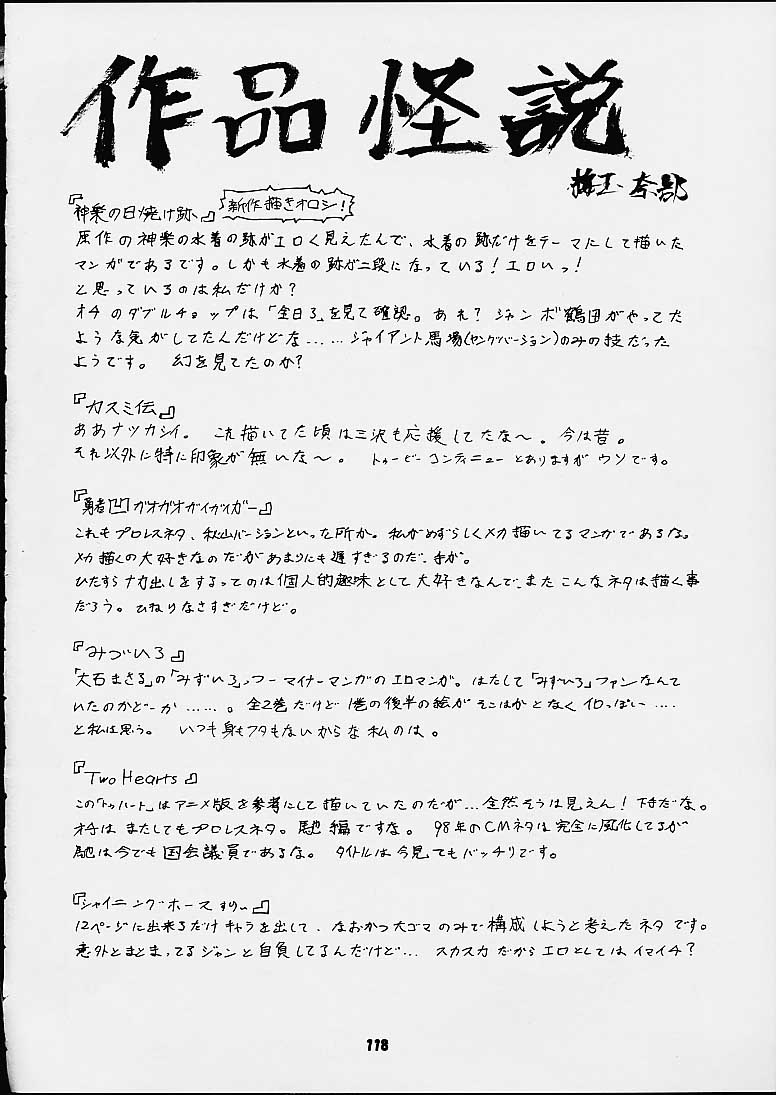 作品怪説
梅玉奈部
『神楽の日焼け跡、』 新作描きオロシ!
原作の神楽の水着の跡がエロく見えたんで、水着の跡だけをテーマにして描いた
マンガであるです。しかも水着の跡が二段になっている!エロいっ!
と思っているのは私だけか?
オチのダブルチョップは「全日ろ」を見て確認。あれ?ジャンボ鶴田がやってた
ような気がしてたんだけどな……ジャイアント馬場(ヤングバージョン)のみの技だった
ようです。 幻を見てたのか?
『カスミ伝』
ああナツカシイ。これ描いてた頃は三沢も応援してたな〜。今は昔。
それ以外に特に印象が無いな〜。 トゥービーコンティニューとありますがウソです。
『勇者凹ガオガオガイガイガー』
これもプロレスネタ、秋山バージョンといった所か。私がめずらしくメカ描いてるマンガであるな。
メカ描くの大好きなのだがあまりにも遅すぎるのだ、手が。
ひたすらナカ出しをするってのは個人的趣味として大好きなんで、またこんなネタは描く事
だろう。ひねりなさすぎだけど。
『みづいろ』
「大石まさる」の「みずいろ」っつーマイナーマンガのエロマンガ。はたして「みずいろ」ファンなんて
いたのかどーか……。全2巻だけど1巻の後半の絵がそこはかとなくイロっぽい……
と私は思う。 いつも身もフタもないからな私のは。
『Two Hearts』
この「トゥハート」はアニメ版を参考にして描いていたのだが…全然そうは見えん!下手だな。
オチはまたしてもプロレスネタ。馳編ですな。 98年のCMネタは完全に風化してるが
馳は今でも国会議員であるな。 タイトルは今見てもバッチリです。
『シャイニングホース すりぃ』
12ページに出来るだけキャラを出して、なおかつ大ゴマのみで構成しようと考えたネタです。
意外とまとまってるジャンと自負してるんだけど… スカスカだからエロとしてはイマイチ?
118